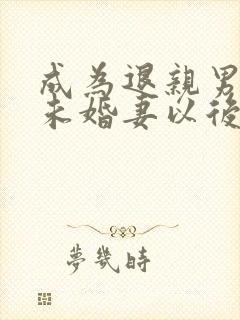 成為退親男
未婚妻以後
夢幾時